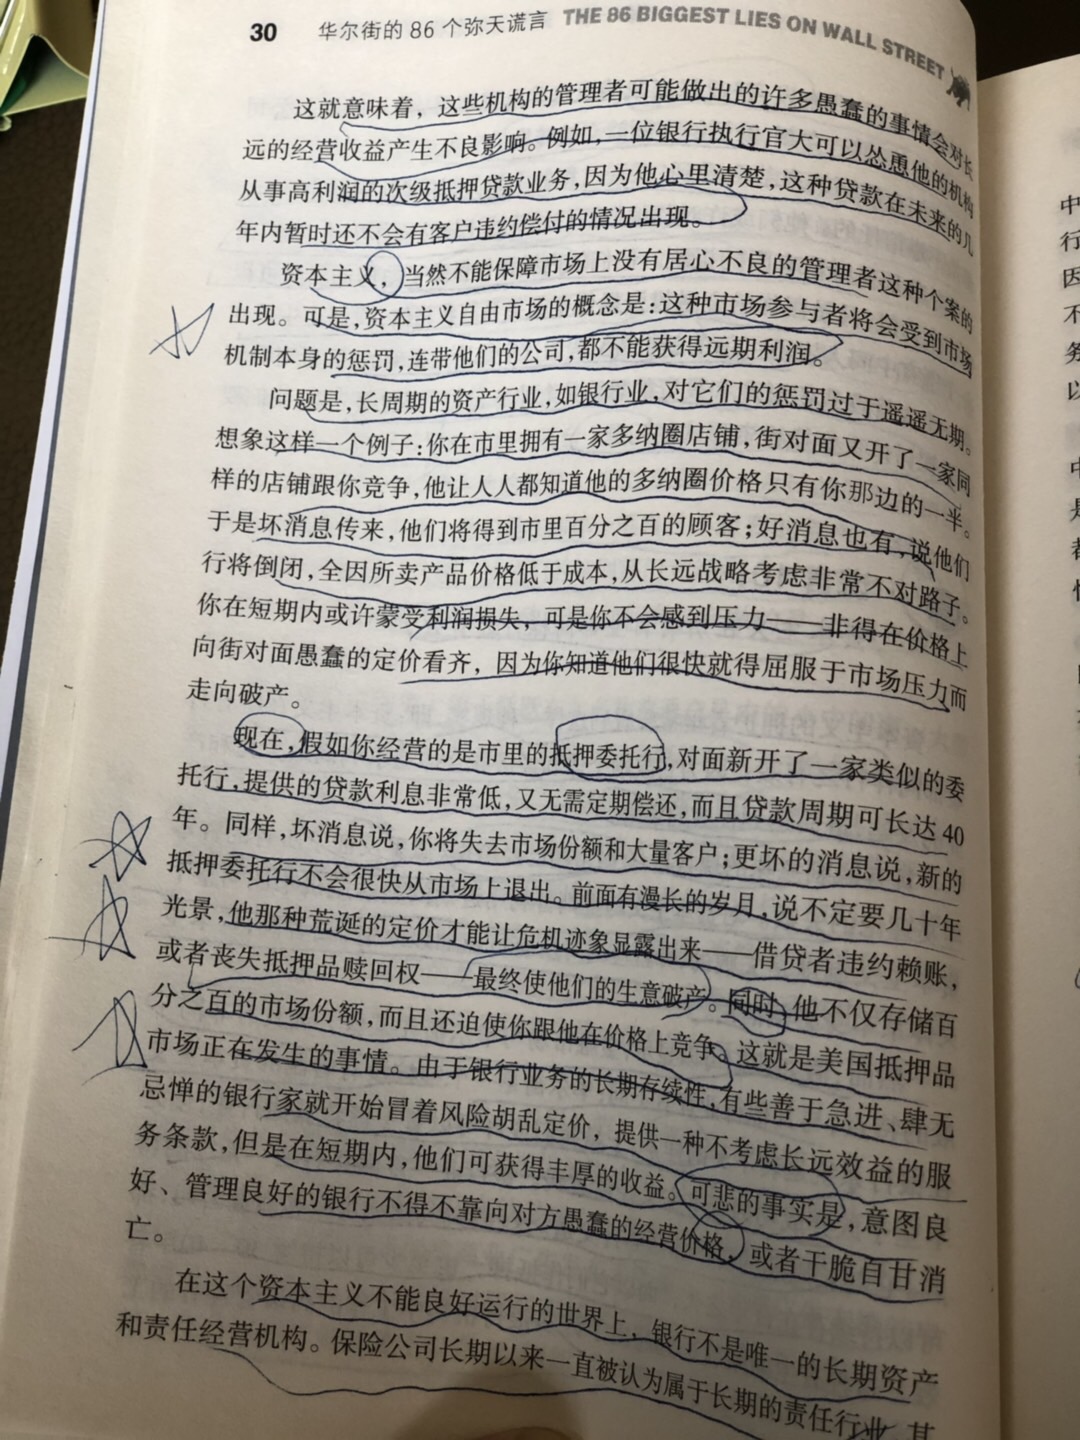 30 华尔街的 86 个弥天谎言 THE 86 BIGGEST LIES ON WALL STREET
这就意味着，这些机构的管理者可能做出的许多愚蠢的事情会对长
远的经营收益产生不良影响。例如，一位银行执行官大可以怂恿他的机构
从事高利润的次级抵押贷款业务，因为他心里清楚，这种贷款在未来的几
年内暂时还不会有客户违约偿付的情况出现。
资本主义，当然不能保障市场上没有居心不良的管理者这种个案的
出现。可是，资本主义自由市场的概念是：这种市场参与者将会受到市场
机制本身的惩罚，连带他们的公司，都不能获得远期利润。
问题是，长周期的资产行业，如银行业，对它们的惩罚过于遥遥无期。
想象这样一个例子：你在市里拥有一家多纳圈店铺，街对面又开了一家同
样的店铺跟你竞争，他让人人都知道他的多纳圈价格只有你那边的一半。
于是坏消息传来，他们将得到市里百分之百的顾客；好消息也有，说他们
行将倒闭，全因所卖产品价格低于成本，从长远战略考虑非常不对路子。
你在短期内或许蒙受利润损失，可是你不会感到压力——非得在价格上
向街对面愚蠢的定价看齐，因为你知道他们很快就得屈服于市场压力而
走向破产。
现在，假如你经营的是市里的抵押委托行，对面新开了一家类似的委
托行，提供的贷款利息非常低，又无需定期偿还，而且贷款周期可长达 40
年。同样，坏消息说，你将失去市场份额和大量客户；更坏的消息说，新的
抵押委托行不会很快从市场上退出。前面有漫长的岁月，说不定要几十年
光景，他那种荒诞的定价才能让危机迹象显露出来——借贷者违约赖账，
或者丧失抵押品赎回权——最终使他们的生意破产。同时，他不仅存储百
分之百的市场份额，而且还迫使你跟他在价格上竞争。这就是美国抵押品
市场正在发生的事情。由于银行业务的长期存续性，有些善于急进、肆无
忌惮的银行家就开始冒着风险胡乱定价，提供一种不考虑长远效益的服
务条款，但是在短期内，他们可获得丰厚的收益。可悲的事实是，意图良
好、管理良好的银行不得不靠向对方愚蠢的经营价格，或者干脆自甘消
亡。
在这个资本主义不能良好运行的世界上，银行不是唯一的长期资产
和责任经营机构。保险公司长期以来一直被认为属于长期的责任行业，其
中
行
因
不
务
以
中